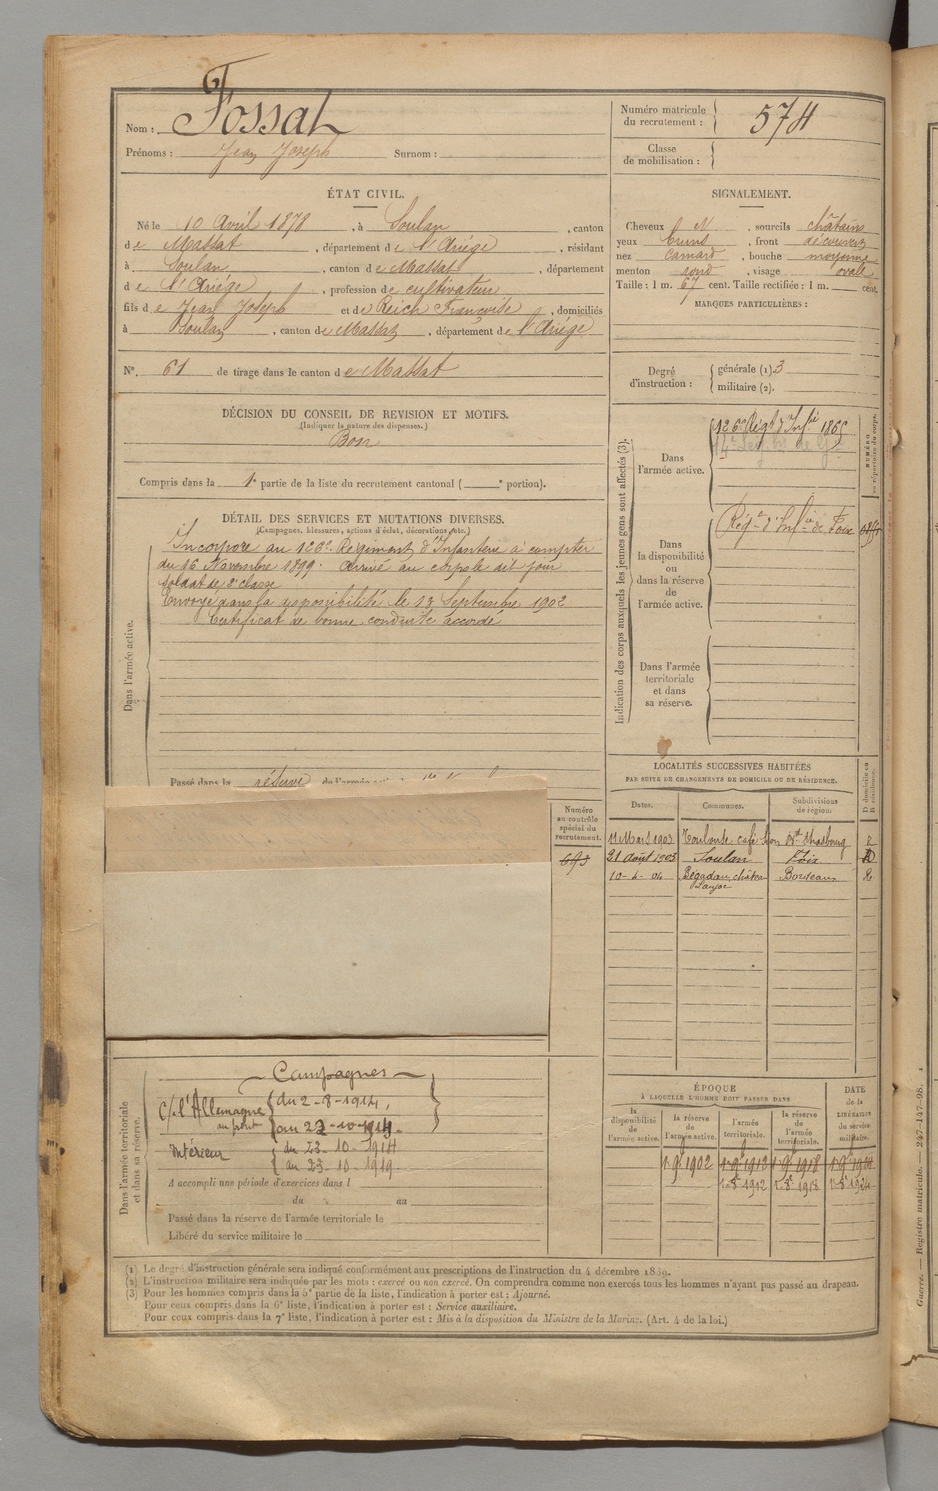 Nom : Fossat
Prénoms : Jean Joseph Surnom :
Numéro matricule du recrutement : 574
Classe de mobilisation :
ÉTAT CIVIL.
Né le 10 Avril 1878, à Soulan, canton
de Massat, département de l'Ariége, résidant
à Soulan, canton de Massat, département
de l'Ariége, profession de cultivateur
fils de Jean Joseph et de Reich Françoise, domiciliés
à Soulan, canton de Massat, département de l'Ariége
N°. 61 de tirage dans le canton de Massat
SIGNALEMENT.
Cheveux N, sourcils châtains
yeux bruns, front découvert
nez camard, bouche moyenne
menton rond, visage ovale
Taille : 1 m. 67 cent. Taille rectifiée : 1 m. cent.
MARQUES PARTICULIÈRES :
Degré d'instruction :
générale (1). 3
militaire (2).
DÉCISION DU CONSEIL DE REVISION ET MOTIFS.
(Indiquer la nature des dispenses.)
Bon
Compris dans la 1e partie de la liste du recrutement cantonal ( e portion).
DÉTAIL DES SERVICES ET MUTATIONS DIVERSES.
(Campagnes, blessures, actions d'éclat, décorations, etc.)
Dans l'armée active.
Incorporé au 126e Régiment d'Infanterie à compter
du 16 Novembre 1899. Arrivé au corps le dit jour
soldat de 2e classe
Envoyé dans la disponibilité le 23 Septembre 1902
Certificat de bonne conduite accordé
Passé dans la réserve de l'armée
Indication des corps auxquels les jeunes gens sont affectés (3).
NUMÉRO au répertoire du corps.
Dans l'armée active.
126e Régt d'Infie
Dans la disponibilité ou dans la réserve de l'armée active.
Régt d'Infie de Foix
Dans l'armée territoriale et dans sa réserve.
Numéro au contrôle spécial du recrutement.
693
LOCALITÉS SUCCESSIVES HABITÉES
PAR SUITE DE CHANGEMENTS DE DOMICILE OU DE RÉSIDENCE.
Dates. Communes. Subdivisions de région. D domicile ou R résidence.
11 Mars 1903 Toulouse café Bd Strasbourg R
21 Août 1903 Soulan Foix D
10-4-04 Bégadan, château Laujac Bordeaux R
Dans l'armée territoriale et dans sa réserve.
Campagnes
C/ l'Allemagne au front
du 2-8-1914,
au 22-10-1914.
Intérieur
du 23-10-1914
au 23-10-1919
A accompli une période d'exercices dans l
du au
Passé dans la réserve de l'armée territoriale le
Libéré du service militaire le
ÉPOQUE
À LAQUELLE L'HOMME DOIT PASSER DANS
la disponibilité de l'armée active.
la réserve de l'armée active.
l'armée territoriale.
la réserve de l'armée territoriale.
DATE de la LIBÉRATION du service militaire.
1.9e 1902 1.9e 1912 1.9e 1918 1.9e 1924
1.8e 1912 1.8e 1918 1.8e 1924
(1) Le degré d'instruction générale sera indiqué conformément aux prescriptions de l'instruction du 4 décembre 1889.
(2) L'instruction militaire sera indiquée par les mots : exercé ou non exercé. On comprendra comme non exercés tous les hommes n'ayant pas passé au drapeau.
(3) Pour les hommes compris dans la 5e partie de la liste, l'indication à porter est : Ajourné.
Pour ceux compris dans la 6e liste, l'indication à porter est : Service auxiliaire.
Pour ceux compris dans la 7e liste, l'indication à porter est : Mis à la disposition du Ministre de la Marine. (Art. 4 de la loi.)
Guerre. — Registre matricule. — 247-147-98.